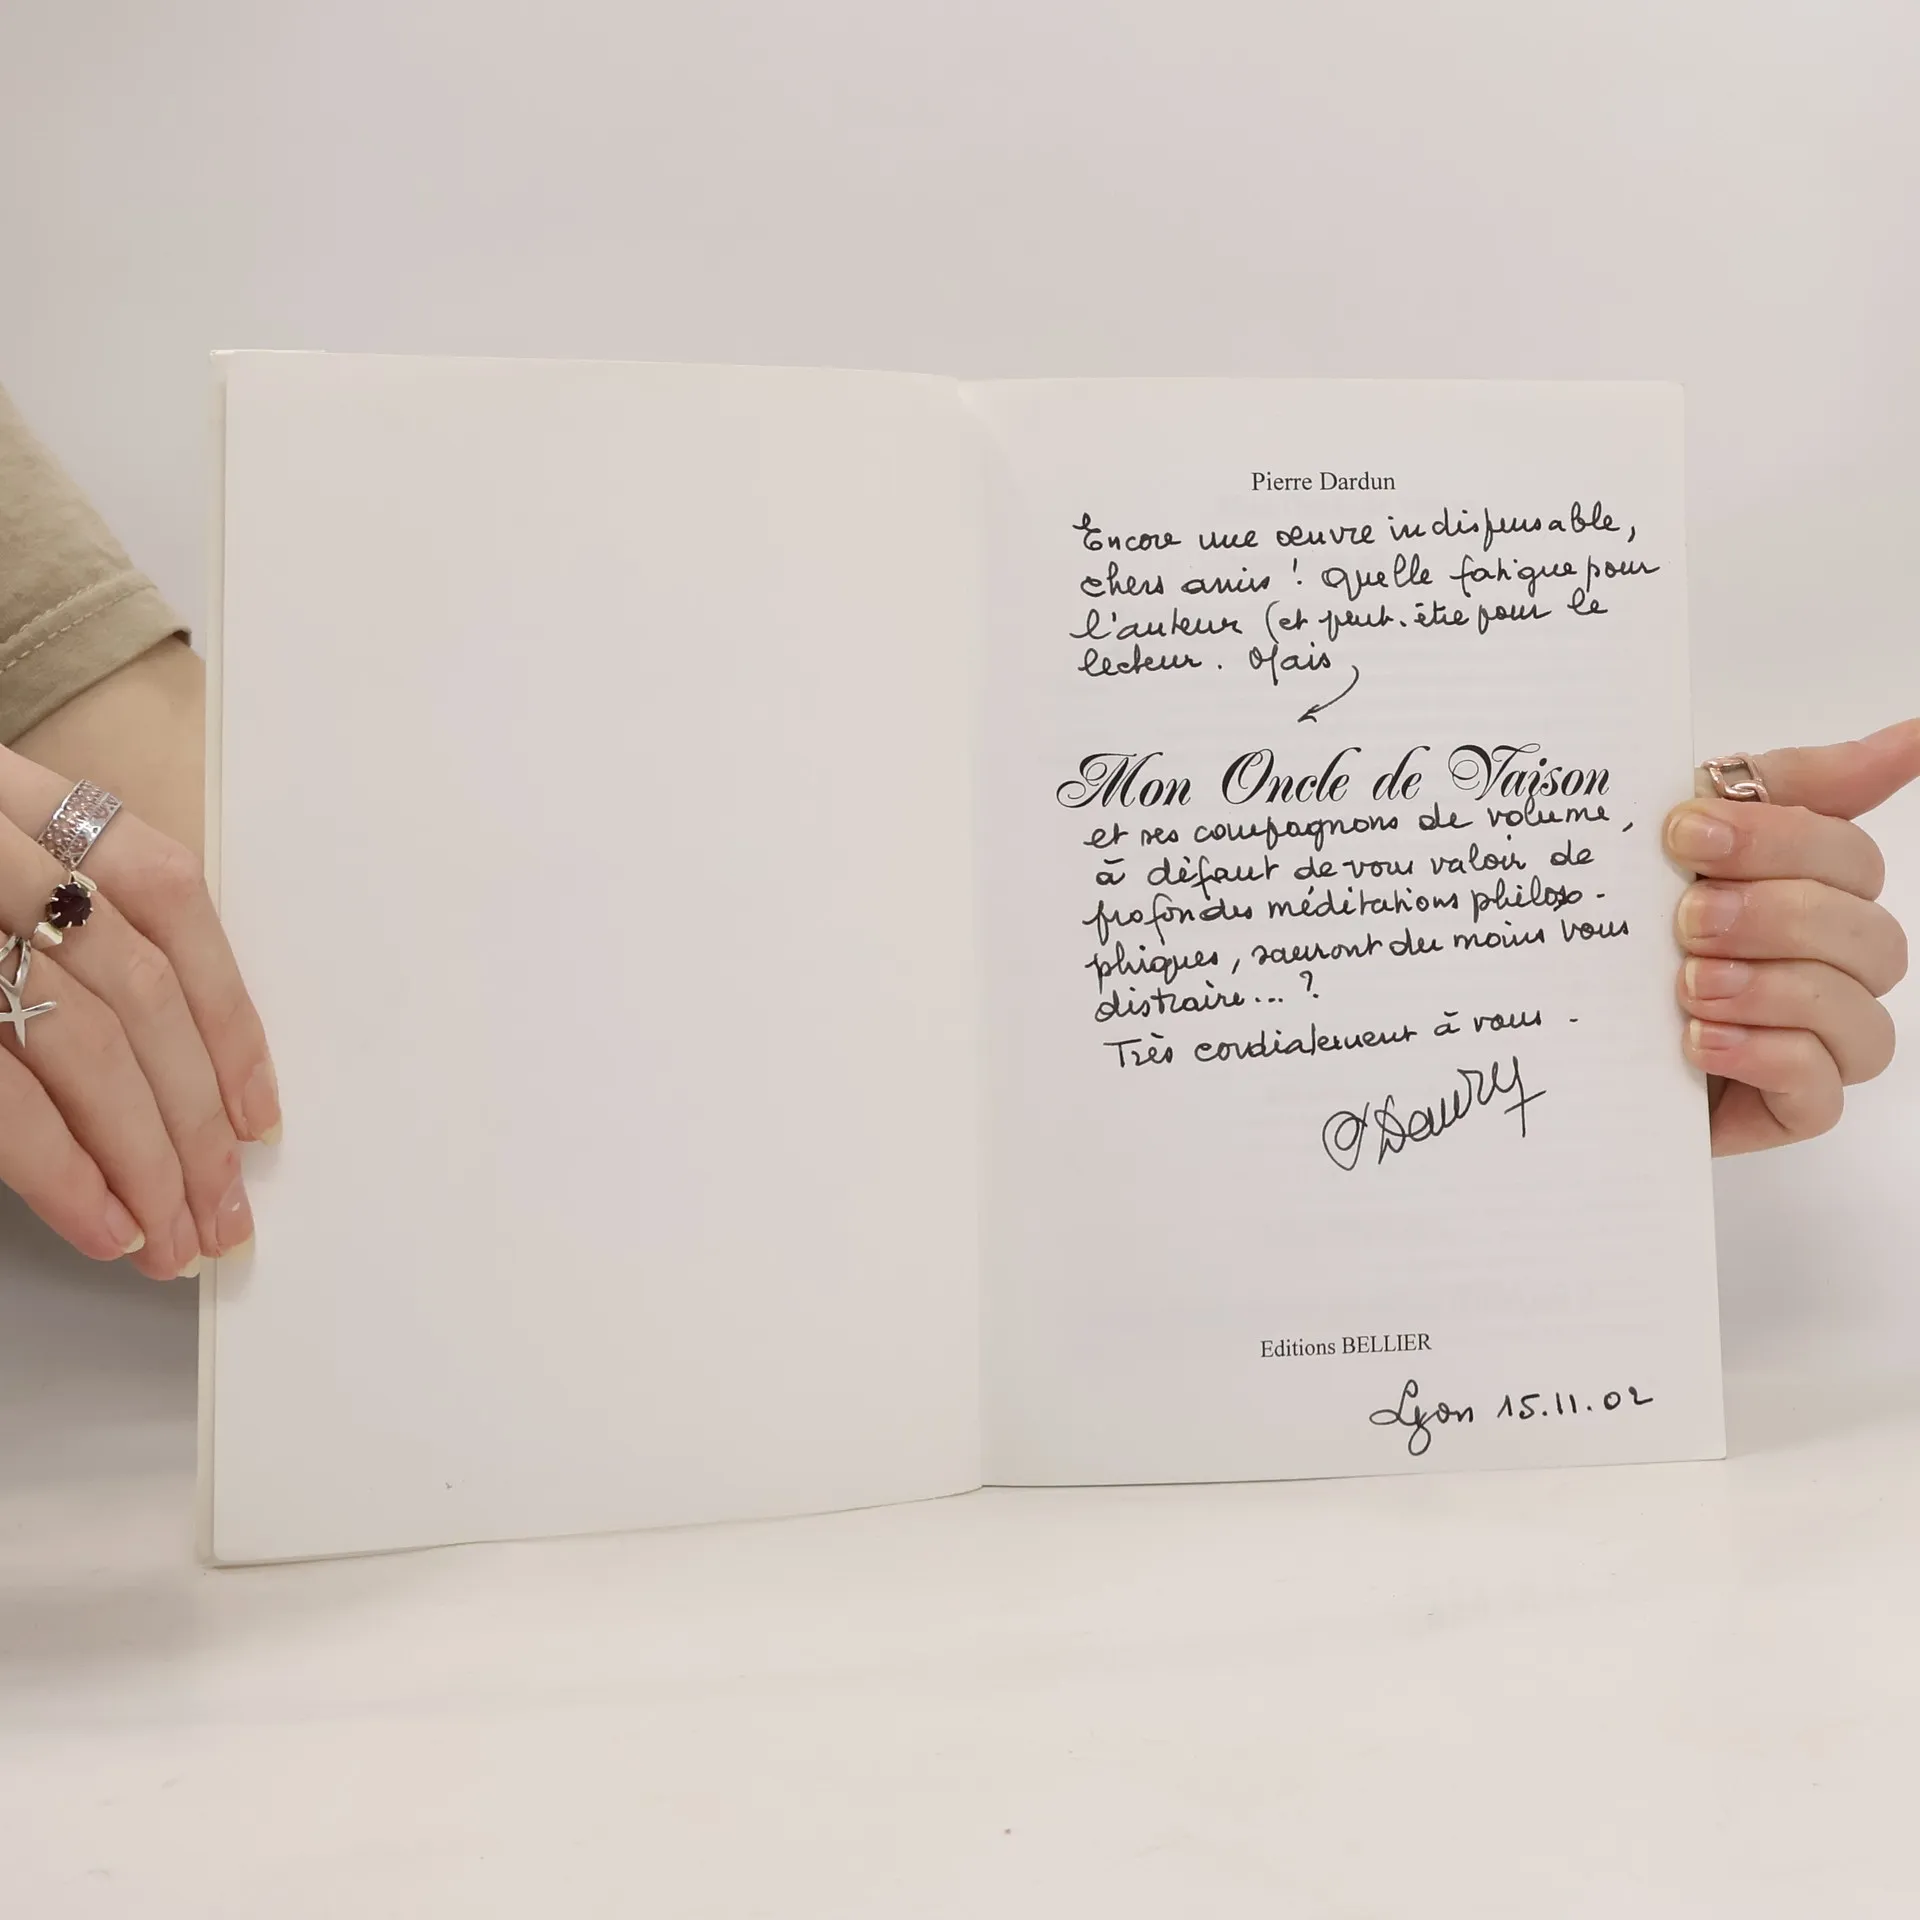 Pierre Dardun
Encore une œuvre indispensable,
chers amis ! Quelle fatigue pour
l'auteur (et peut-être pour le
lecteur. Mais,
Mon Oncle de Vaison
et ses compagnons de volume,
à défaut de vous valoir de
profondes méditations philoso-
phiques, sauront du moins vous
distraire... ?
Très cordialement à vous -
Lyon 15.11.02
Editions BELLIER